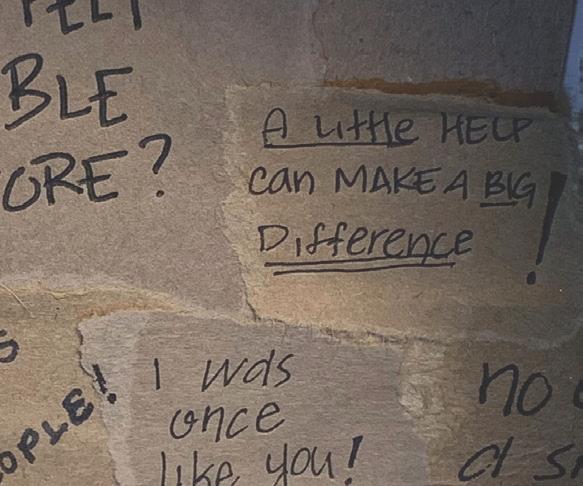 BLE
ORE?
A Little HELP
can MAKE A BIG
Difference!
I was
once
like you!
no